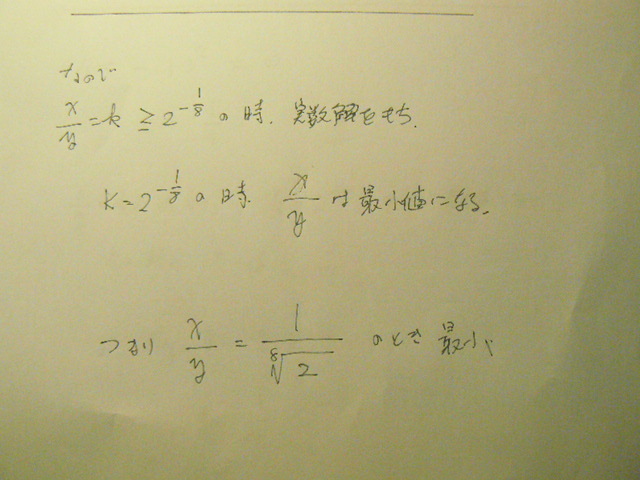 なので
x/y = k ≧ 2^{-1/8} の時、実数解をもち、
k = 2^{-1/8} の時 x/y は最小値になる。
つまり x/y = 1/⁸√2 のとき 最小